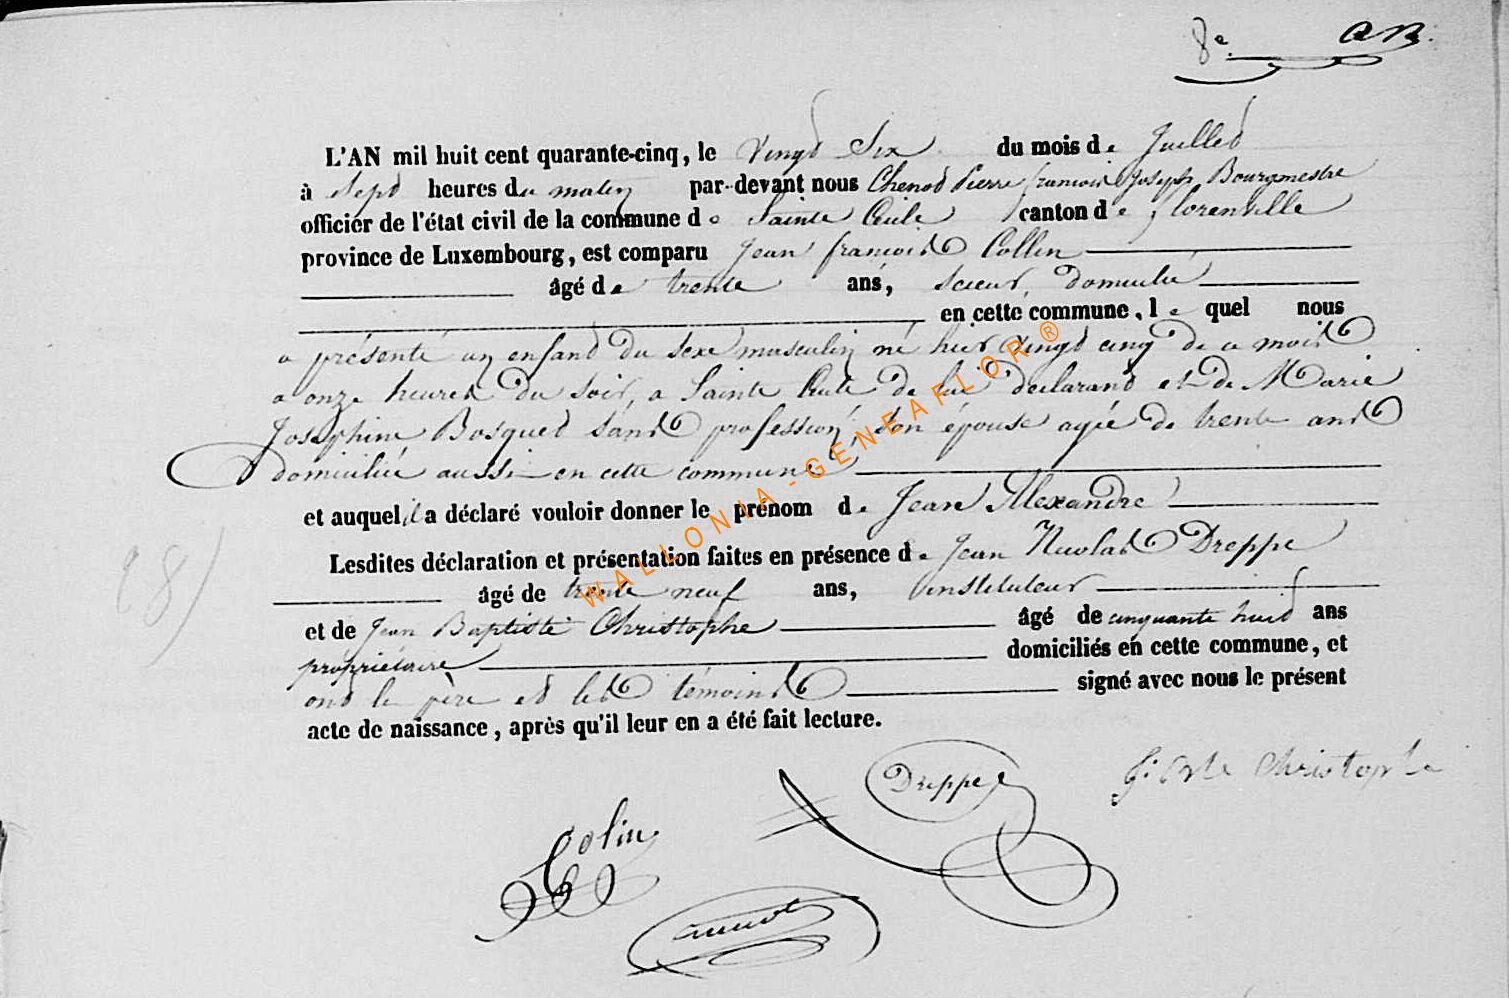 8e
L'AN mil huit cent quarante-cinq, le Vingt Six du mois de Juillet
à Sept heures du matin par-devant nous Chenot Pierre francois Joseph Bourgmestre
officier de l'état civil de la commune de Sainte Cecile canton de florenville
province de Luxembourg, est comparu Jean francois Collin
âgé de trente ans, scieur, domicilié
en cette commune, le quel nous
a présenté un enfant du sexe masculin né hier vingt cinq de ce mois
a onze heures du soir, a Sainte Cecile de lui declarant et de Marie
Josephine Bosquet sans profession, son épouse agée de trente ans
domiciliée aussi en cette commune
et auquel il a déclaré vouloir donner le prénom de Jean Alexandre
Lesdites déclaration et présentation faites en présence de Jean Nicolas Dreppe
âgé de trente neuf ans, instituteur
et de Jean Baptiste Christophe âgé de cinquante huit ans
propriétaire domiciliés en cette commune, et
ont le père et les témoins signé avec nous le présent
acte de naissance, après qu'il leur en a été fait lecture.
Dreppe
Christophe
Colin
WALLONIA-GENEAFLOR®